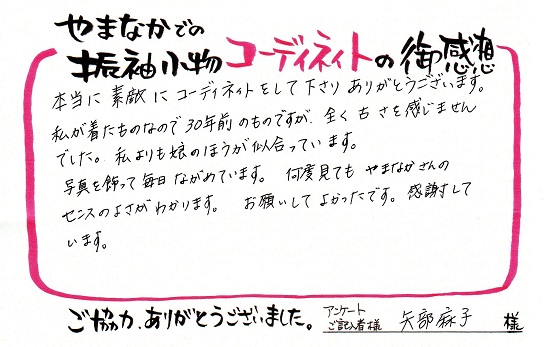 やまなかでの
振袖小物コーディネイトの御感想
本当に素敵にコーディネイトをして下さりありがとうございます。
私が着たものなので30年前のものですが、全く古さを感じません
でした。私よりも娘のほうが似合っています。
写真を飾って毎日ながめています。何度見てもやまなかさんの
センスのよさがわかります。お願いしてよかったです。感謝して
います。
ご協力、ありがとうございました。アンケートご記入者様 矢部麻子 様